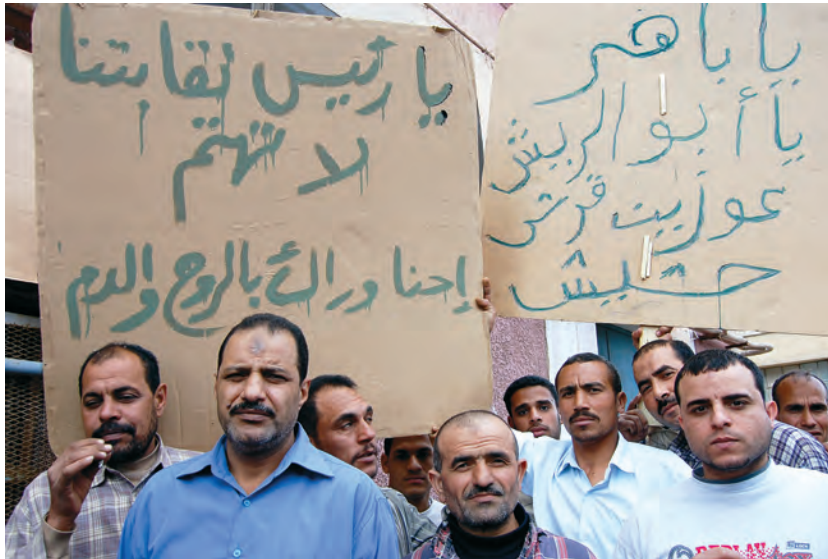 يا رئيس نقابتنا
لا تهتم
إحنا وراك بالروح والدم
يا باهر
يا أبو الريش
عوزيت قرش
حشيش
REPLAY